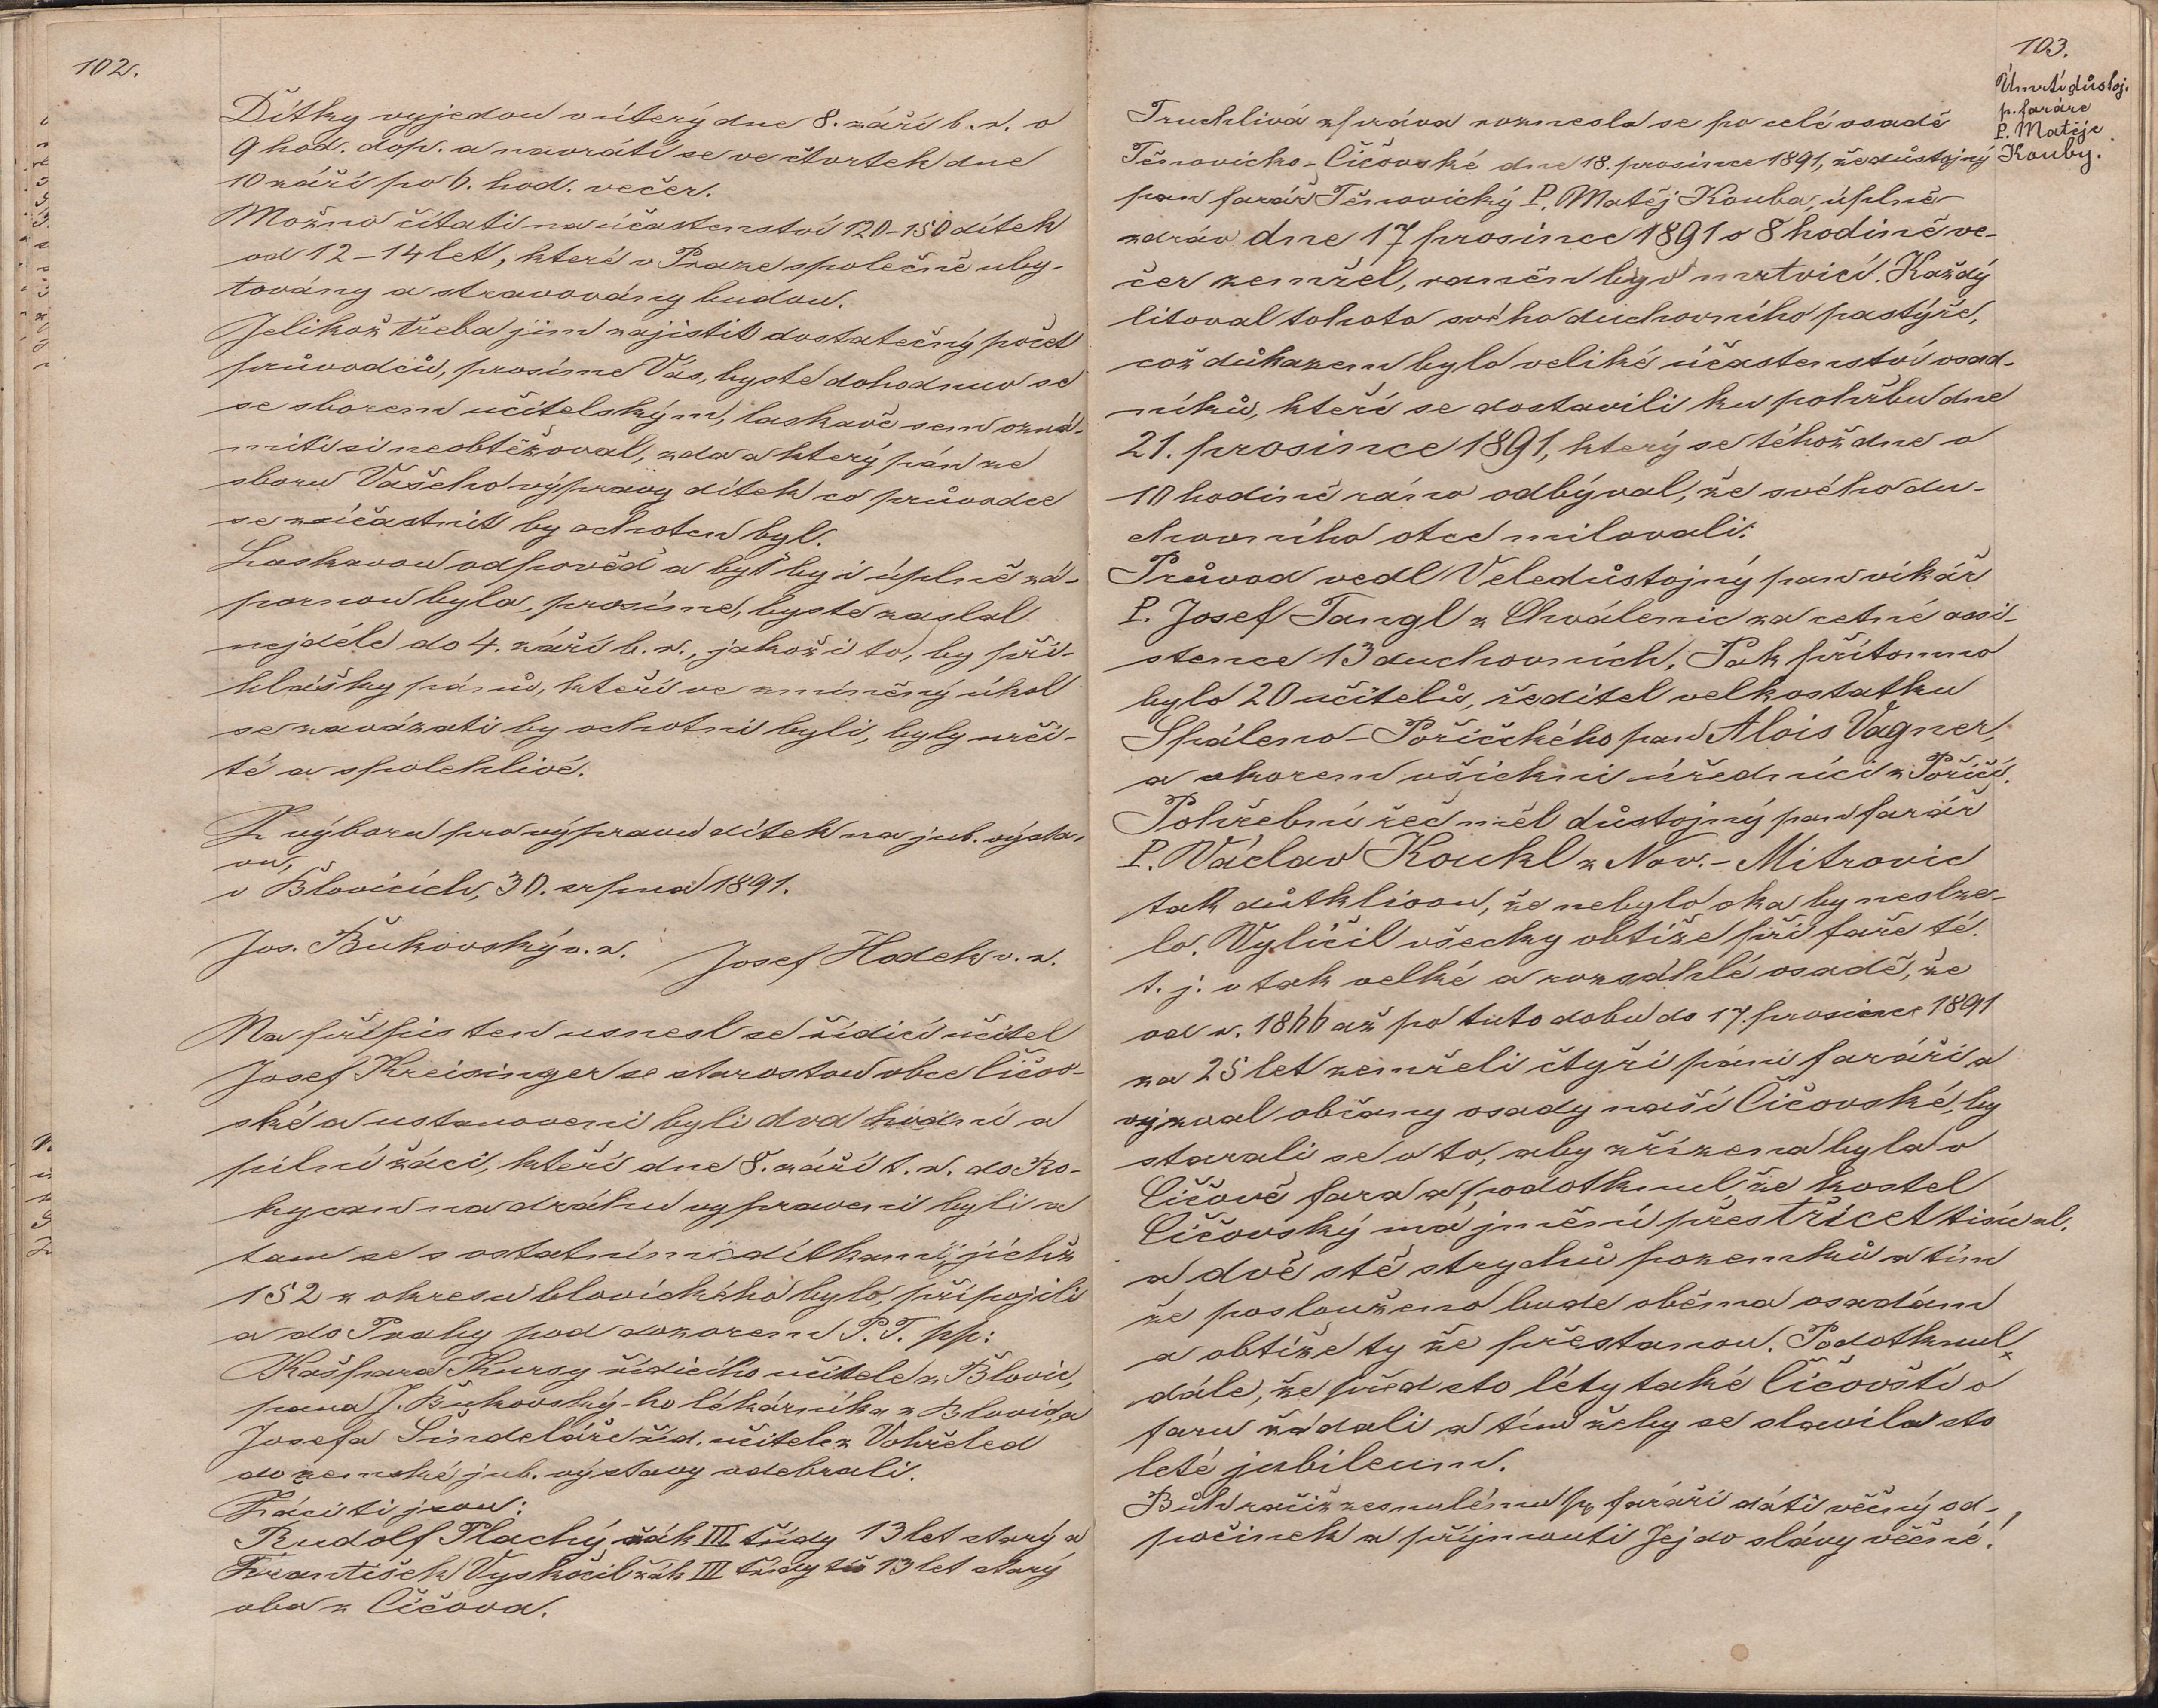 102.
Dítky vyjedou v úterý dne 8. září b. r. v
9 hod. dop. a navrátí se ve čtvrtek dne
10 září po 6. hod. večer.
Možno čítati na účastenství 120–150 dítek
od 12–14 let, které v Praze společně uby-
továny a stravovány budou.
Jelikož třeba jim zajistit dostatečný počet
průvodců, prosíme Vás, byste dohodnuv se
se sborem učitelským, laskavě sem ozná-
miti si neobtěžoval, zda a který pán ze
sboru Vašeho výpravy dítek co průvodce
se zúčastnit by ochoten byl.
Laskavou odpověď a byť by i úplně zá-
pornou byla, prosíme, byste zaslal
nejdéle do 4. září b. r., jakož i to, by při-
hlášky pánů, kteří ve zmíněný úkol
se zavázati by ochotni byli, byly urči-
té a spolehlivé.
Z výboru pro výpravu dítek na jub. výsta-
vu,
v Blovicích, 30. srpna 1891.
Jos. Bukovský v. r. Josef Hodek v. r.
Na přípis ten usnesl se řídící učitel
Josef Kreisinger se starostou obce Číčov-
ské a ustanoveni byli dva hodní a
pilní žáci, kteří dne 8. září t. r. do Ro-
kycan na dráhu vypraveni byli a
tam se s ostatními dítkami, jichž
152 z okresu blovického bylo, připojili
a do Prahy pod dozorem P. T. pp:
Kašpara Kursy řídícího učitele z Blovic,
pana J. Bukovský-ho lékárníka z Blovic, a
Josefa Šindeláře říd. učitele z Vohřeled
do zemské jub. výstavy odebrali.
Žáci ti jsou:
Rudolf Plachý žák III třídy 13 let starý a
František Vyskočil žák III třídy též 13 let starý
oba z Číčova.
103.
Úmrtí důstoj.
p. faráře
P. Matěje
Kouby.
Truchlivá zpráva roznesla se po celé osadě
Těnovicko-Číčovské dne 18. prosince 1891, že důstojný
pan farář Těnovický P. Matěj Kouba, úplně
zdráv dne 17 prosince 1891 o 8 hodině ve-
čer zemřel, raněn byv mrtvicí. Každý
litoval tohoto svého duchovního pastýře,
což důkazem bylo veliké účastenství osad-
níků, kteří se dostavili ku pohřbu dne
21. prosince 1891, který se téhož dne o
10 hodině ráno odbýval, že svého du-
chovního otce milovali.
Průvod vedl Veledůstojný pan vikář
P. Josef Tangl z Chválenic za cetné assi-
stence 13 duchovních. Pak přítomno
bylo 20 učitelů, ředitel velkostatku
Spáleno-Poříčského pan Alois Vagner,
a skorem všichni úředníci z Poříčí.
Pohřební řeč měl důstojný pan farář
P. Václav Koukl z Nov.-Mitrovic
tak důtklivou, že nebylo oka by neslze-
lo. Vylíčil všecky obtíže při faře té.
t. j. v tak velké a rozsáhlé osadě, že
od r. 1866 až po tuto dobu do 17. prosince 1891
za 25 let zemřeli čtyři páni faráři a
vyzval občany osady naší Číčovské, by
starali se o to, aby zřízena byla v
Číčově fara a podotknul, že kostel
Číčovský má jmění přes třicet tisíc zl.
a dvě stě strychů pozemků a tím
že poslouženo bude oběma osadám
a obtíže ty že přestanou. Podotknul
dále, že před sto léty také Číčovští o
faru žádali a tím žeby se slavila sto
leté jubileum.
Bůh račiž zesnulému p. faráři dáti věčný od-
počinek a přijmouti Jej do slávy věčné!